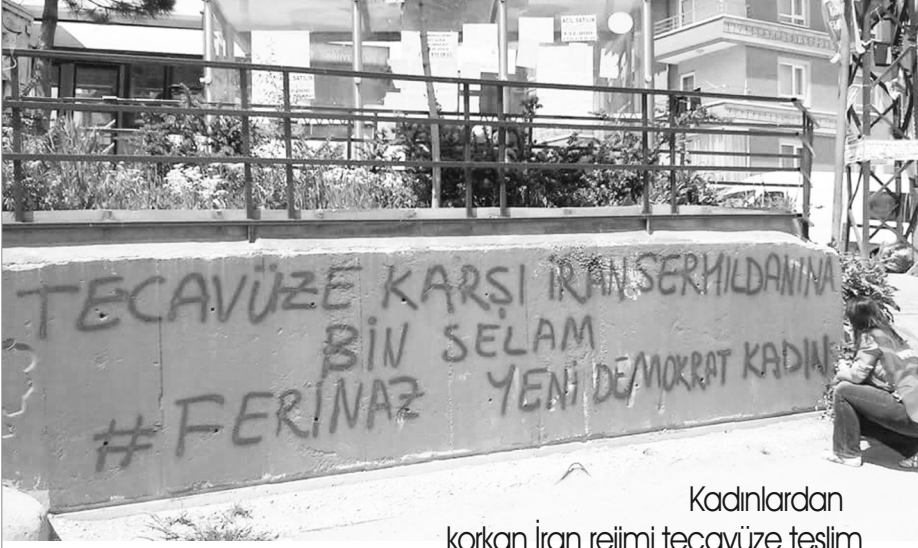 ACİL SATILIK
SATILIK
TECAVÜZE KARŞI İRAN SERHILDANINA
BİN SELAM
#FERİNAZ YENİ DEMOKRAT KADIN
Kadınlardan
korkan İran rejimi tecavüze teslim